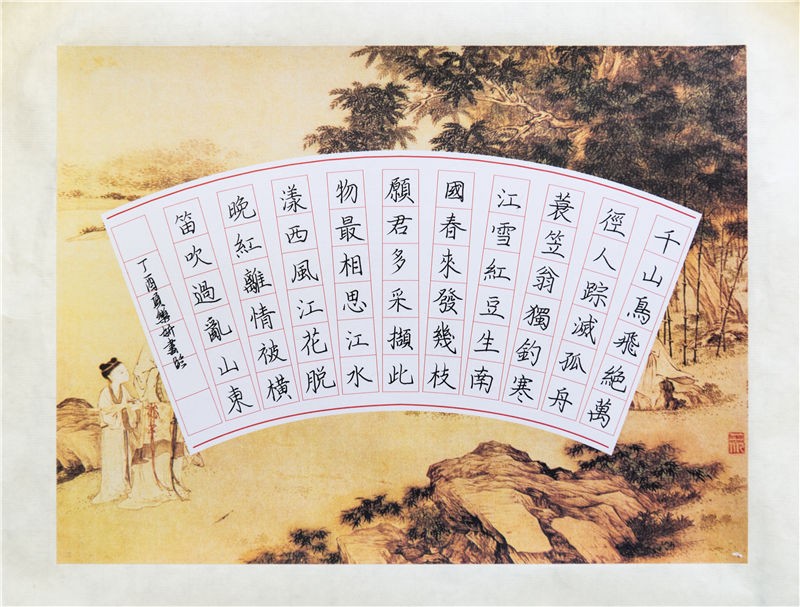 千山鳥飛絶萬
徑人踪滅孤舟
蓑笠翁獨釣寒
江雪紅豆生南
國春來發幾枝
願君多采擷此
物最相思江水
漾西風江花脱
晚紅離情被橫
笛吹過亂山東
丁酉夏樂妍書